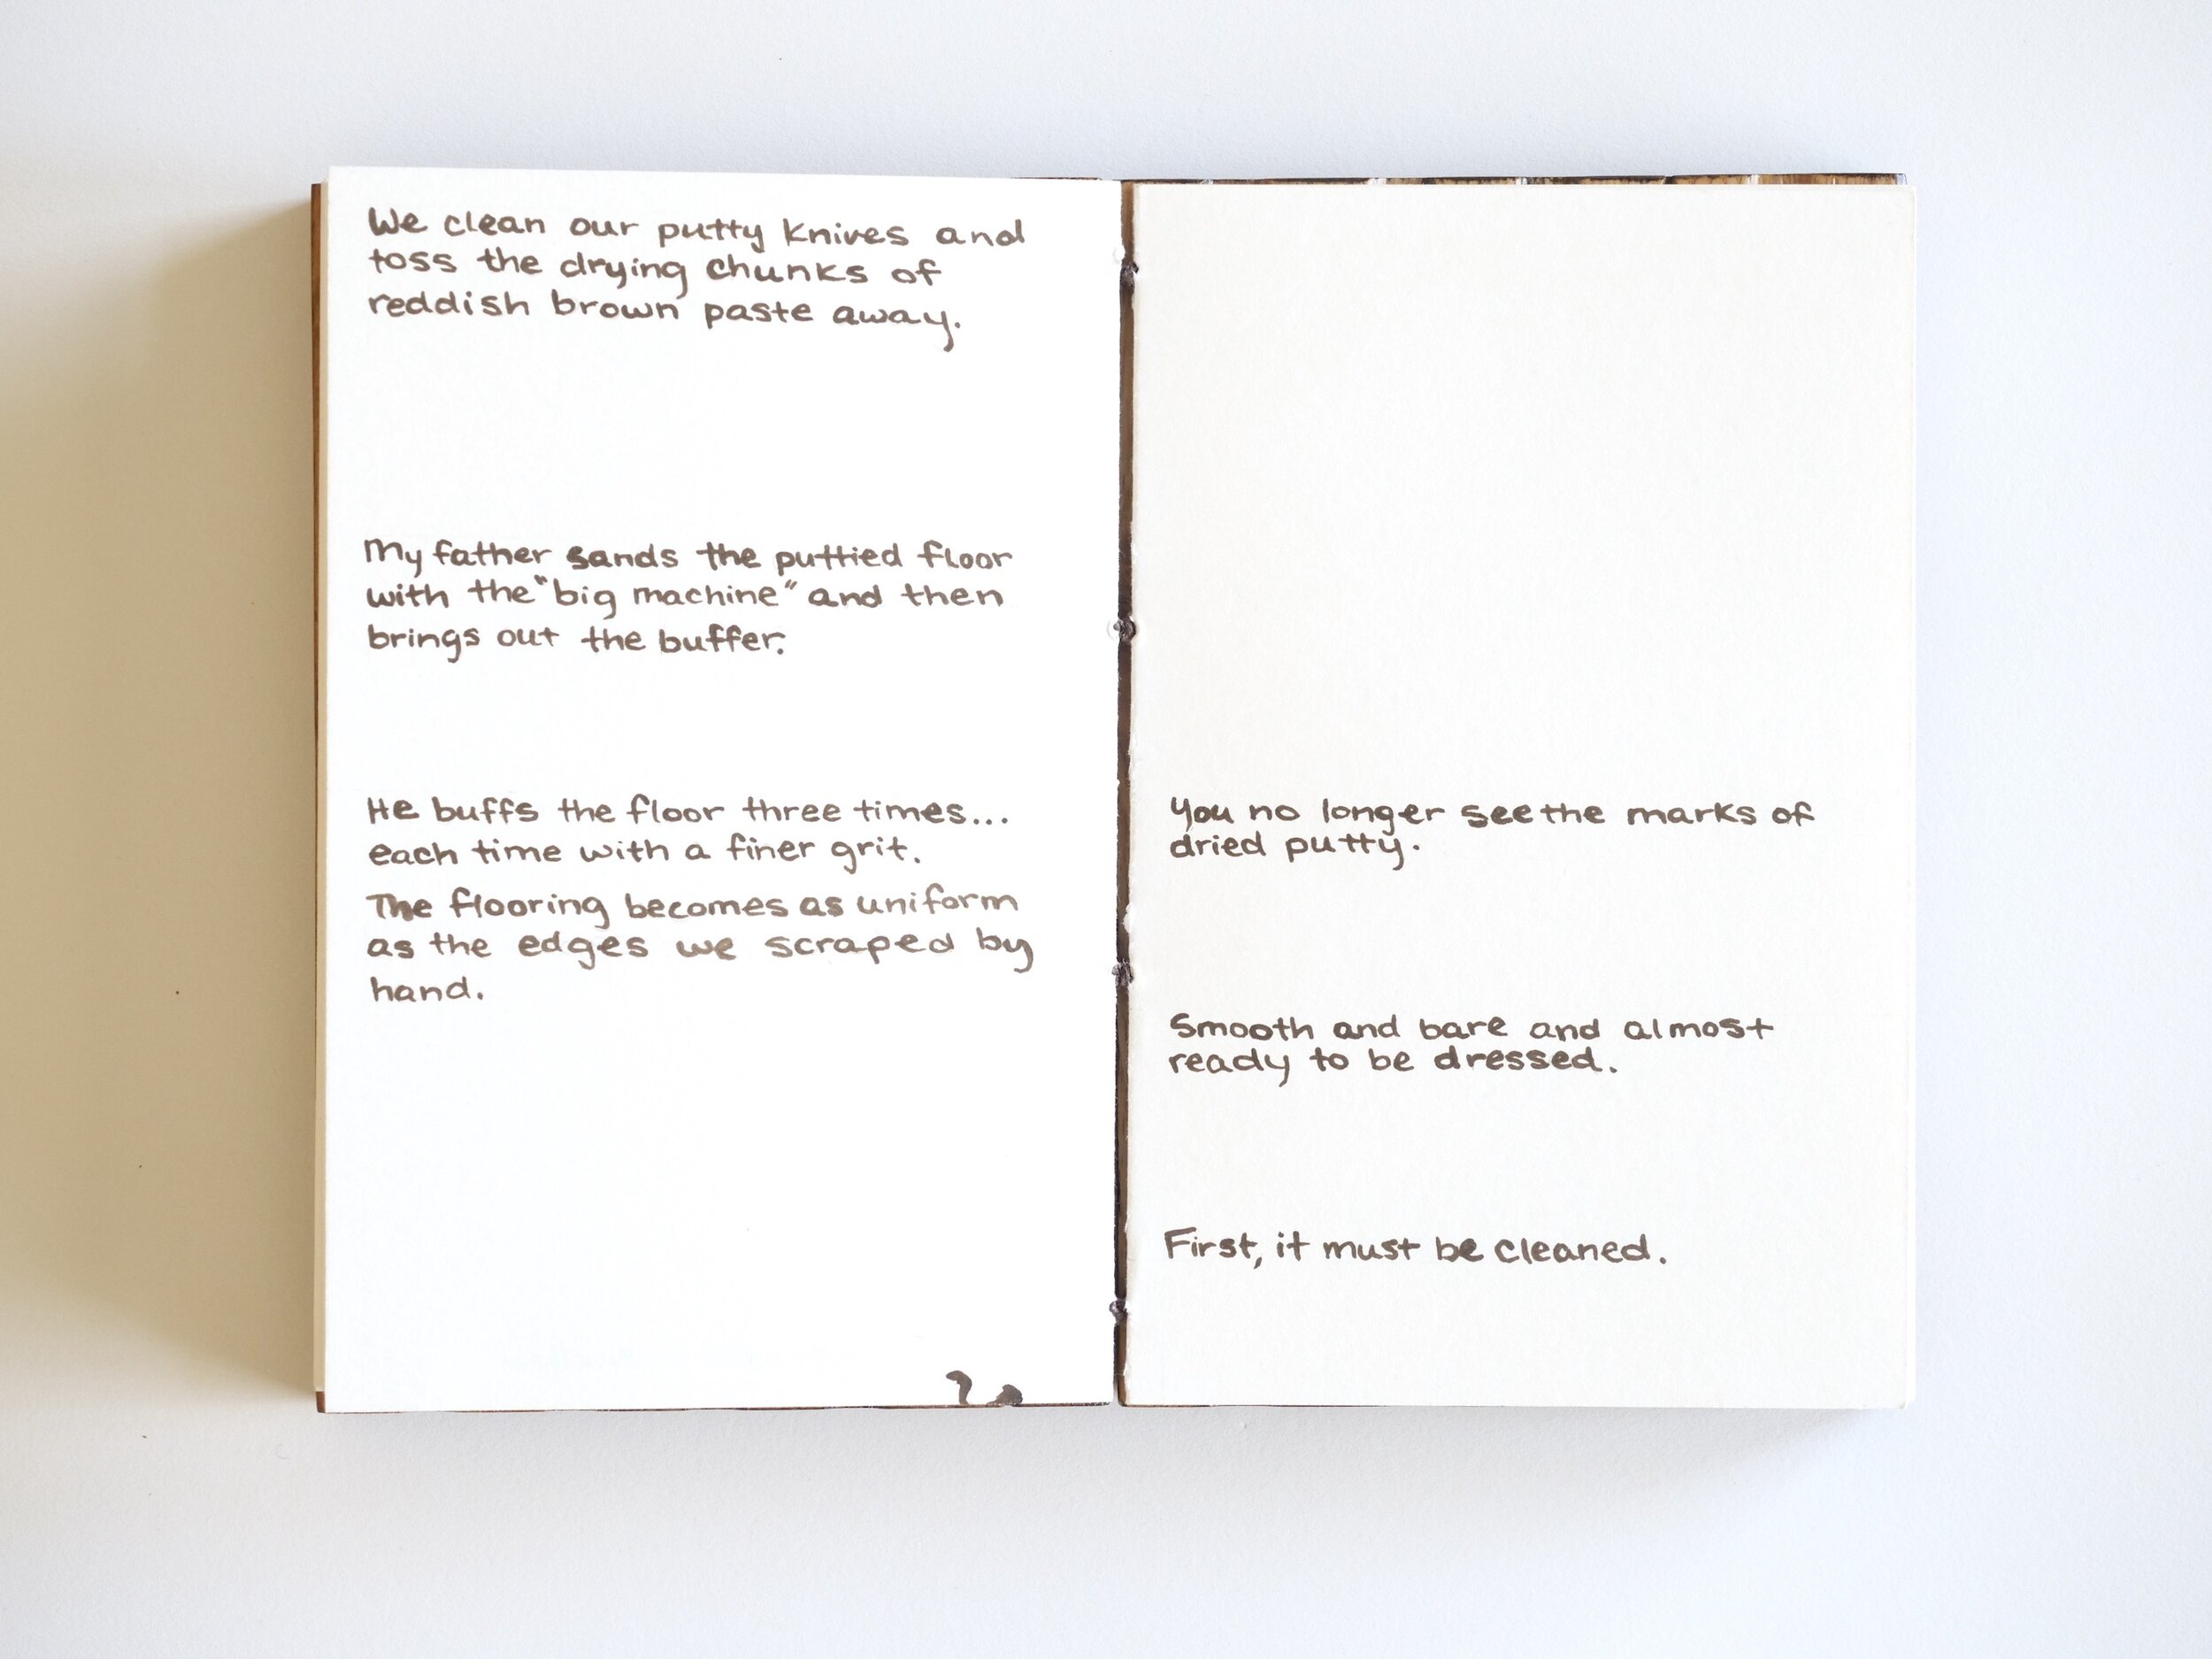 We clean our putty knives and
toss the drying chunks of
reddish brown paste away.
My father sands the puttied floor
with the "big machine" and then
brings out the buffer.
He buffs the floor three times...
each time with a finer grit.
The flooring becomes as uniform
as the edges we scraped by
hand.
You no longer see the marks of
dried putty.
Smooth and bare and almost
ready to be dressed.
First, it must be cleaned.